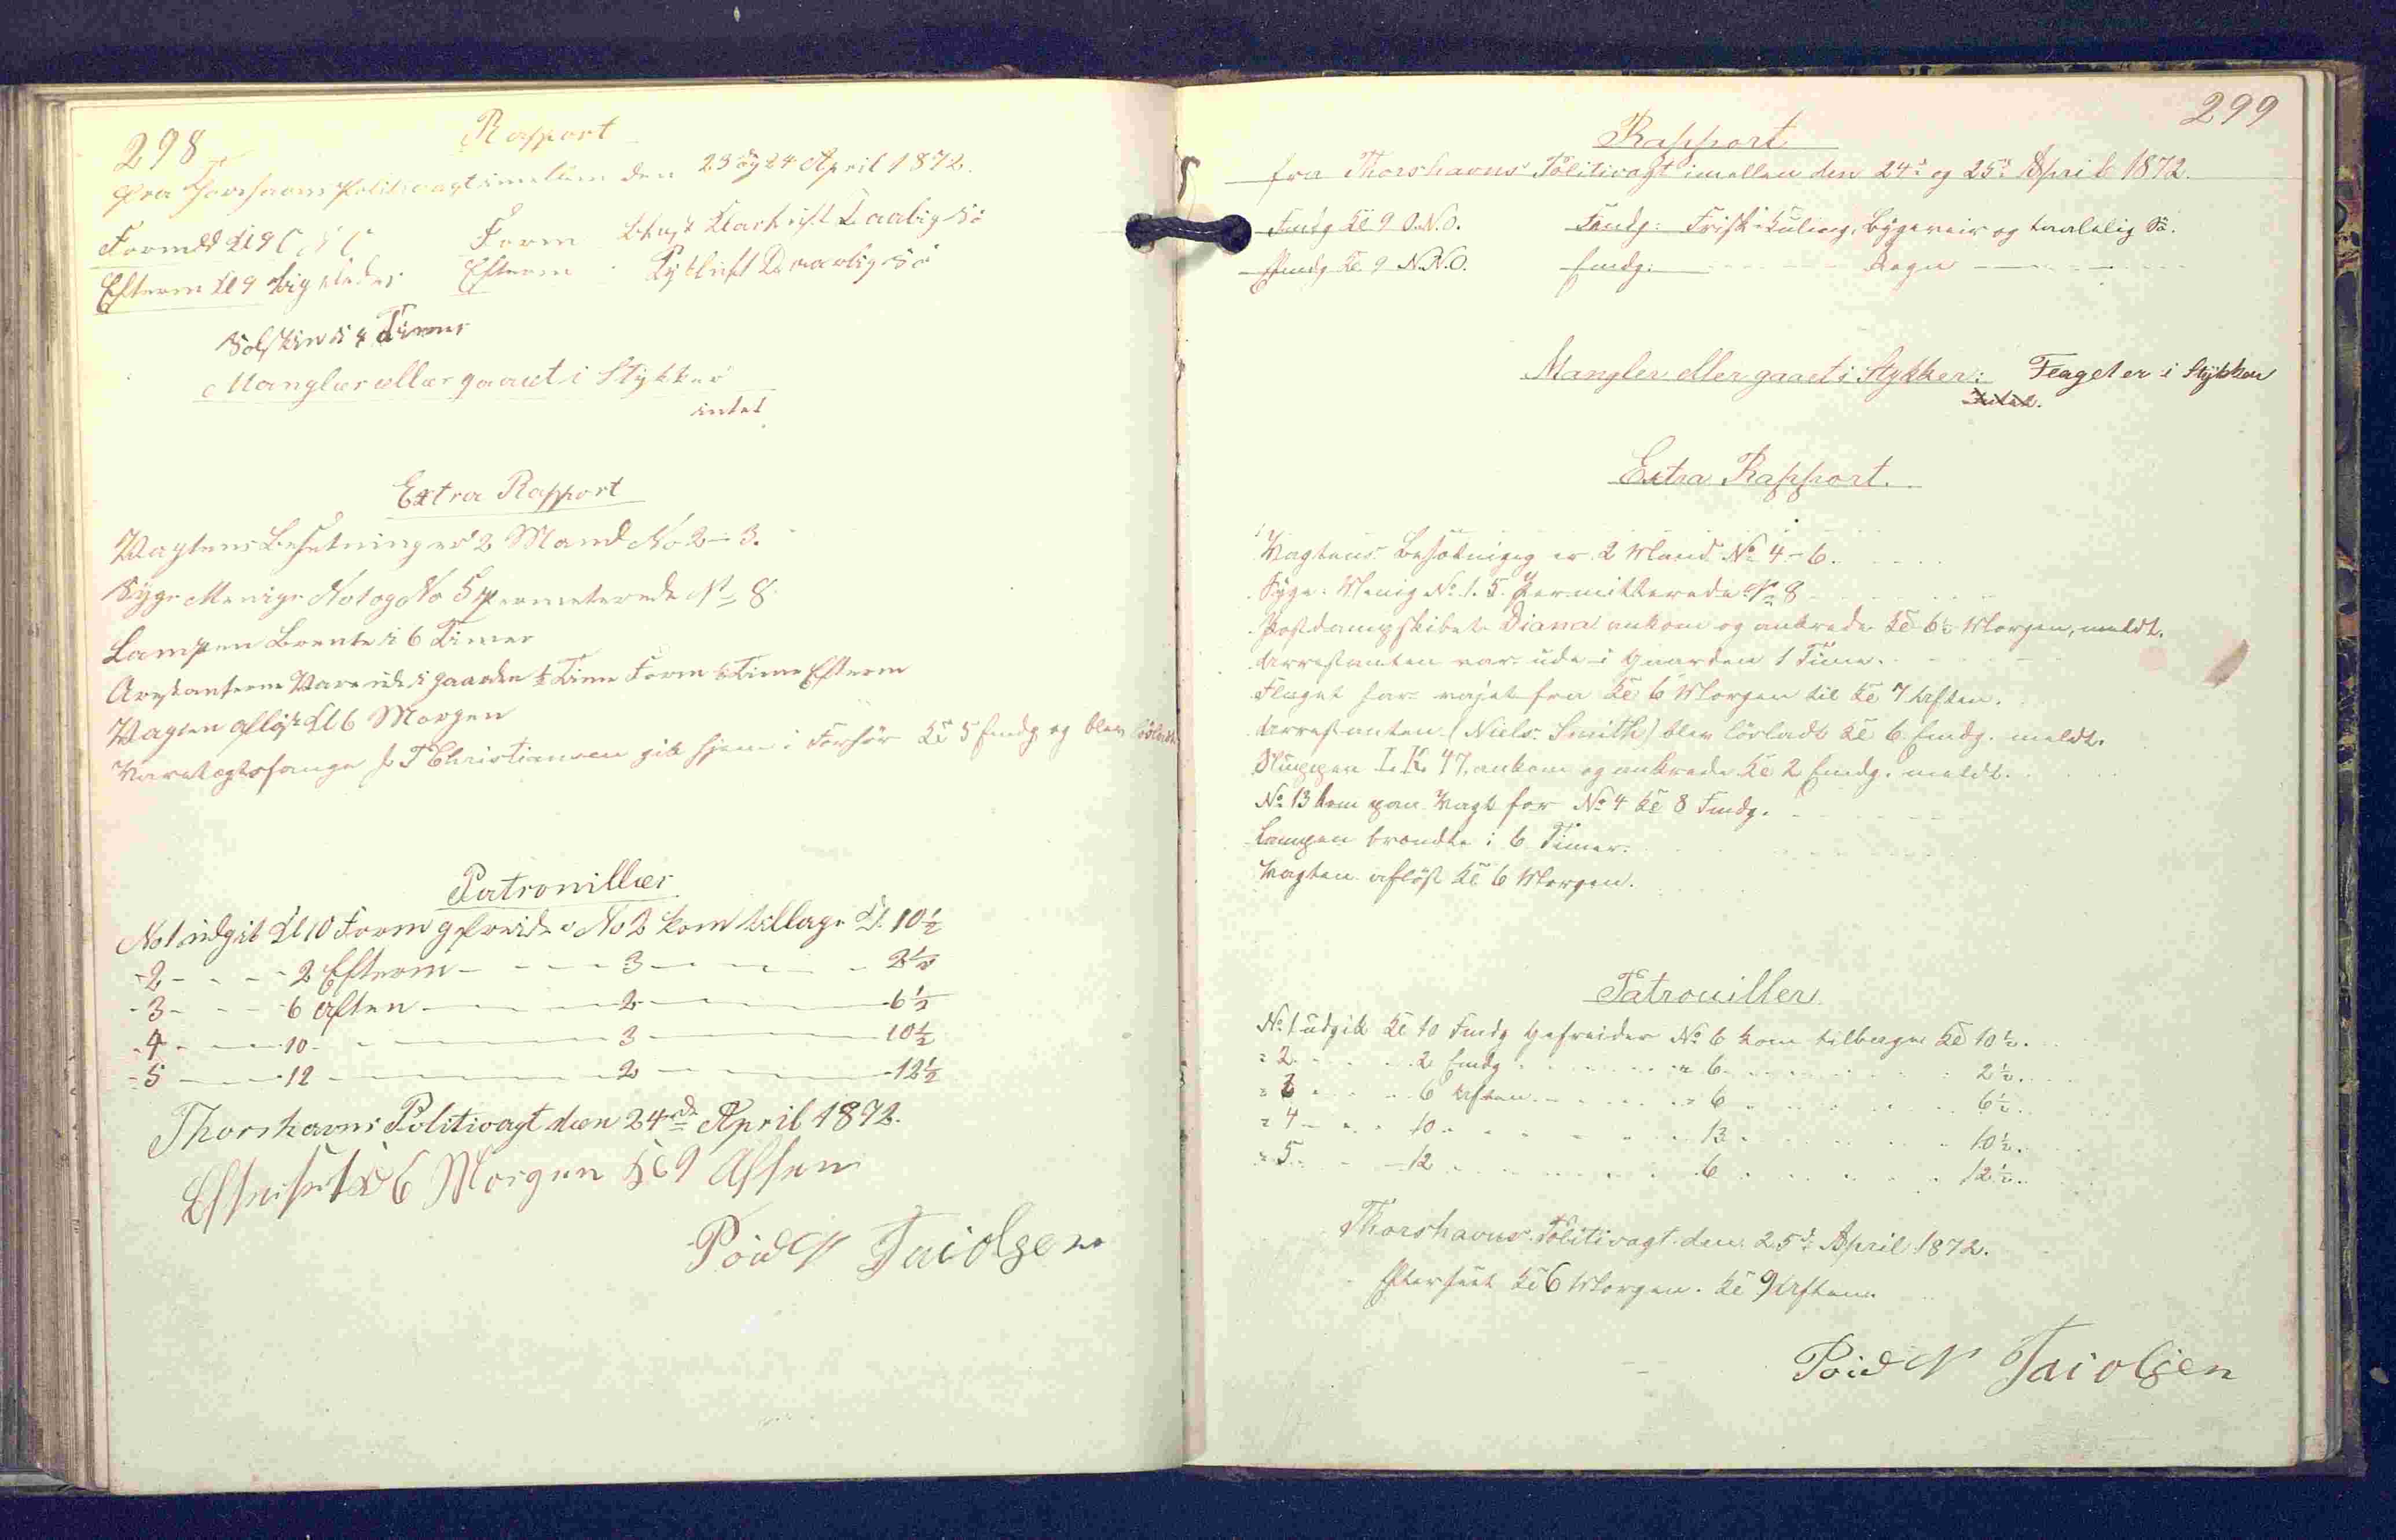 298
Rapport
fra Thorshavns Politivagt imellem den 23 og 24 April 1872.
Formdd Kl 9
Form
Klarluft Daarlig Sö
Efterm Kl 9
Efterm
Tykluft Daarlig Sö
Solskin i 4 Timer
Mangler eller gaaet i Stykker
intet
Extra Rapport
Vagtens Besetning er 2 Mand No 2 - 3.
Syge Menige No 1 og No 5 permeterede No 8
Lampen Brente i 6 Timer
Arestanterne Vare ude i gaarden ½ Time Form ½ Time Efterm
Vagten aflöst Kl 6 Morgen
Varetægtsfange J. T Christiansen gik hjem i Forhör Kl 5 Emdg og blev lösladt
Patrouiller
No 1 udgik Kl 10 Form gefreider No 2 kom tilbage Kl. 10½
- 2 - - - 2 Efterm - - - 3 - - - 2½
- 3 - - - 6 Aften - - - 2 - - - 6½
- 4 - - - 10 - - - 3 - - - 10½
- 5 - - - 12 - - - 2 - - - 12½
Thorshavns Politivagt den 24de April 1872.
Efterseet Kl 6 Morgen Kl 9 Aften
299
Rapport
fra Thorshavns Politivagt imellem den 24d og 25d April 1872.
Fmdg Kl 9 O.N.O.
Fmdg: Frisk Kuling, Bygeveir og taalelig Sö.
Emdg Kl 9 N.N.O.
Emdg: - - - Regn - - -
Mangler eller gaaet i Stykker: Flaget er i Stykker
Intet.
Extra Rapport.
Vagtens Besætning er 2 Mand No 4 - 6.
Syge: Menig No 1. 5. Permitterede No 8
Postdampskibet Diana ankom og ankrede Kl 6½ Morgen, meldt.
Arrestanten var ude i Gaarden 1 Time.
Flaget har vajet fra Kl 6 Morgen til Kl 7 Aften.
Arrestanten (Niels Smith) blev lösladt Kl 6 Emdg. meldt.
Sluppen I. K. 47. ankom og ankrede Kl 2 Emdg. meldt.
No 13 kom paa Vagt for No 4 Kl 8 Fmdg.
Lampen brændte i 6 Timer.
Vagten aflöst Kl 6 Morgen.
Patrouiller
No 1 udgik Kl 10 Fmdg Gefreider No 6 kom tilbage Kl 10½.
" 2 - - - 2 Emdg - - - " 6 - - - 2½.
" 3 - - - 6 Aften - - - " 6 - - - 6½.
" 4 - - - 10 - - - 13 - - - 10½.
" 5 - - - 12 - - - 6 - - - 12½.
Thorshavns Politivagt den 25d April 1872.
Efterseet Kl 6 Morgen. Kl 9 Aften.